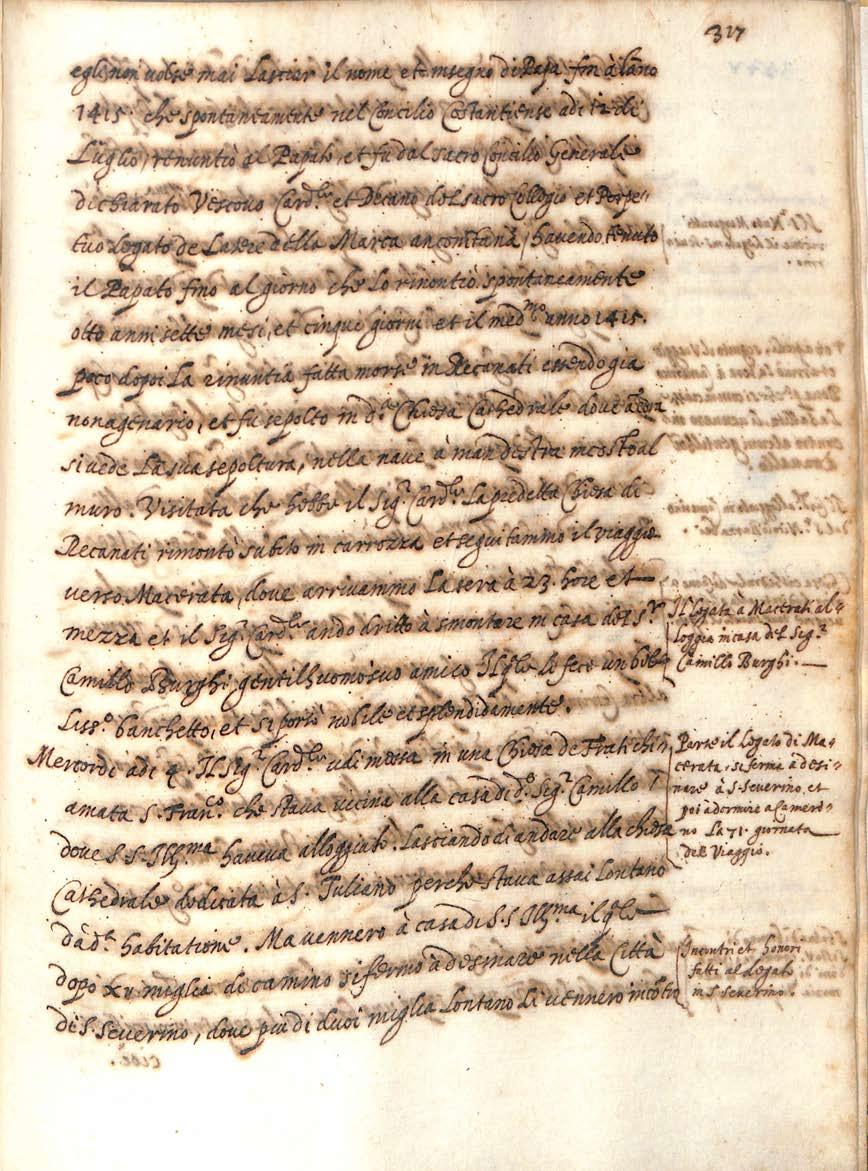 317
egli non volse mai lasciar il nome et insegne di Papa fin à l'año
1415. che spontaneamente nel Concilio Costantiense adi 12 di
Luglio, renuntiò al Papato, et fu dal sacro Concilio Generale
dichiarato Vescovo Card.le et Decano del sacro Collegio et Perpe-
tuo Legato de Latere della Marca anconitana, havendo tenuto
il Papato fino al giorno che lo rinontiò spontaneamente
otto anni sette mesi, et cinque giorni et il med.mo anno 1415.
poco dopoi la rinuntia fatta morse in Recanati essendo già
nonagenario, et fu sepolto in d.a Chiesa Cathedrale dove
si vede la sua sepoltura, nella nave à man destra incosto al
muro. Visitata che hebbe il Sig.r Card.le la predetta Chiesa di
Recanati rimontò subito in carrozza et seguitammo il viaggio
verso Macerata, dove arrivammo la sera à 23. hore et
mezza et il Sig.r Card.le andò dritto à smontare in casa del S.r
Camillo Burghi gentilhuomo suo amico Il q.le le fece un bel-
liss.o banchetto, et si portò nobile et splendidamente.
Mercordi adi 4. Il Sig.r Card.le udì messa in una Chiesa de Frati chi-
amata S. Fran.co che stava vicina alla casa di d.o Sig.r Camillo
dove S.S. Ill.ma haveva alloggiato. Lasciando di andare alla chiesa
Cathedrale dedicata à S. Iuliano perche stava assai lontano
dà d.a habitatione. Ma vennero à casa di S.S Ill.ma il q.le
dopo xv miglia di camino si fermò à desinare nella Città
di S. Severino, dove più di duoi miglia lontano li vennero incõtro
Il Legato à Macerata al-
loggia in casa del Sig.r
Camillo Burghi.
Parte il Legato di Ma-
cerata, si ferma à desi-
nare à S. Severino, et
poi à dormire a Cameri-
no la 71. giornata
del Viaggio.
Incontri et honori
fatti al Legato
in S. Severino.